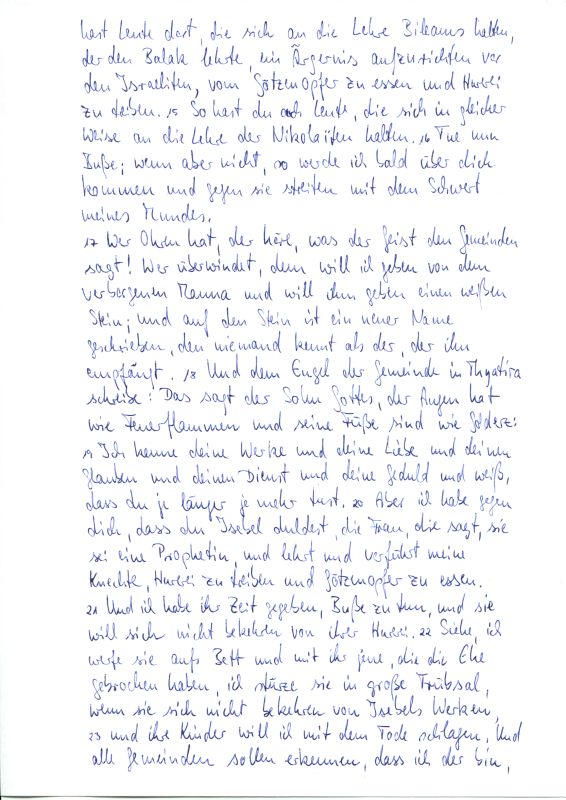 hast Leute dort, die sich an die Lehre Bileams halten,
der den Balak lehrte, ein Ärgernis aufzurichten vor
den Israeliten, vom Götzenopfer zu essen und Hurerei
zu treiben. 15 So hast du auch Leute, die sich in gleicher
Weise an die Lehre der Nikolaïten halten. 16 Tue nun
Buße; wenn aber nicht, so werde ich bald über dich
kommen und gegen sie streiten mit dem Schwert
meines Mundes.
17 Wer Ohren hat, der höre, was der Geist den Gemeinden
sagt! Wer überwindet, dem will ich geben von dem
verborgenen Manna und will ihm geben einen weißen
Stein; und auf dem Stein ist ein neuer Name
geschrieben, den niemand kennt als der, der ihn
empfängt. 18 Und dem Engel der Gemeinde in Thyatira
schreibe: Das sagt der Sohn Gottes, der Augen hat
wie Feuerflammen und seine Füße sind wie Golderz:
19 Ich kenne deine Werke und deine Liebe und deinen
Glauben und deinen Dienst und deine Geduld und weiß,
dass du je länger je mehr tust. 20 Aber ich habe gegen
dich, dass du Isebel duldest, die Frau, die sagt, sie
sei eine Prophetin, und lehrt und verführt meine
Knechte, Hurerei zu treiben und Götzenopfer zu essen.
21 Und ich habe ihr Zeit gegeben, Buße zu tun, und sie
will sich nicht bekehren von ihrer Hurerei. 22 Siehe, ich
werfe sie aufs Bett und mit ihr jene, die die Ehe
gebrochen haben, ich stürze sie in große Trübsal,
wenn sie sich nicht bekehren von Isebels Werken,
23 und ihre Kinder will ich mit dem Tode schlagen. Und
alle Gemeinden sollen erkennen, dass ich der bin,